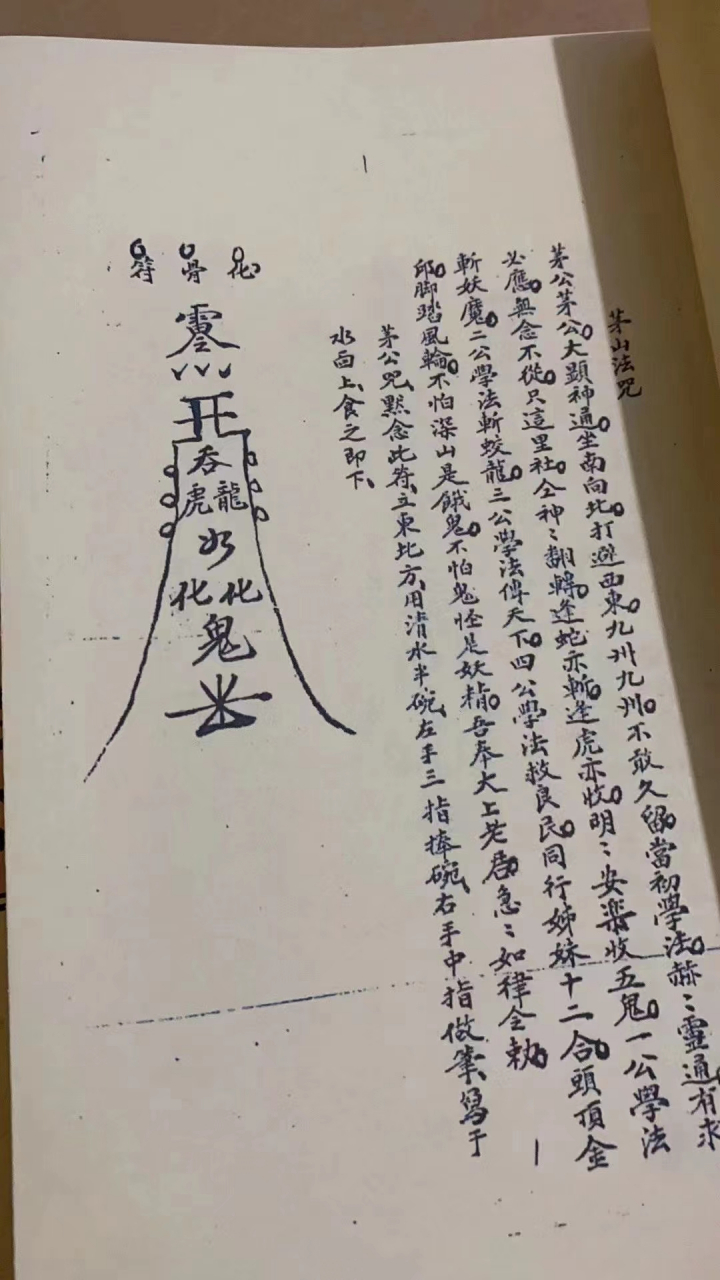 茅山法咒
茅公茅公。大顯神通。坐南向北。打避西東。九州九州。不敢久留。當初學法。赫〻靈通。有求
必應。無念不從。只這里社仝神〻翻轉。逢蛇亦斬。逢虎亦收。明〻安樂收五鬼。一公學法
斬妖魔。二公學法斬蛟龍。三公學法傳天下。四公學法救良民。同行姊妹十二合。頭頂金
邱。脚踏風輪。不怕深山是餓鬼。不怕鬼怪是妖精。吾奉大上老君。急〻如律令勅。
茅公咒、默念此符、立東北方、用清水半碗、左手三指捧碗、右手中指做筆、寫于
水面上、食之即下、
化骨符
開
吞
龍虎
水
化化
鬼